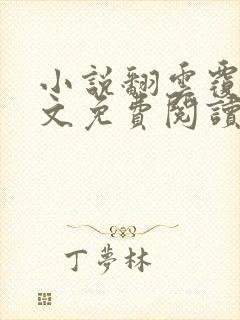 小說翻雲覆
文免費閱讀
丁夢林